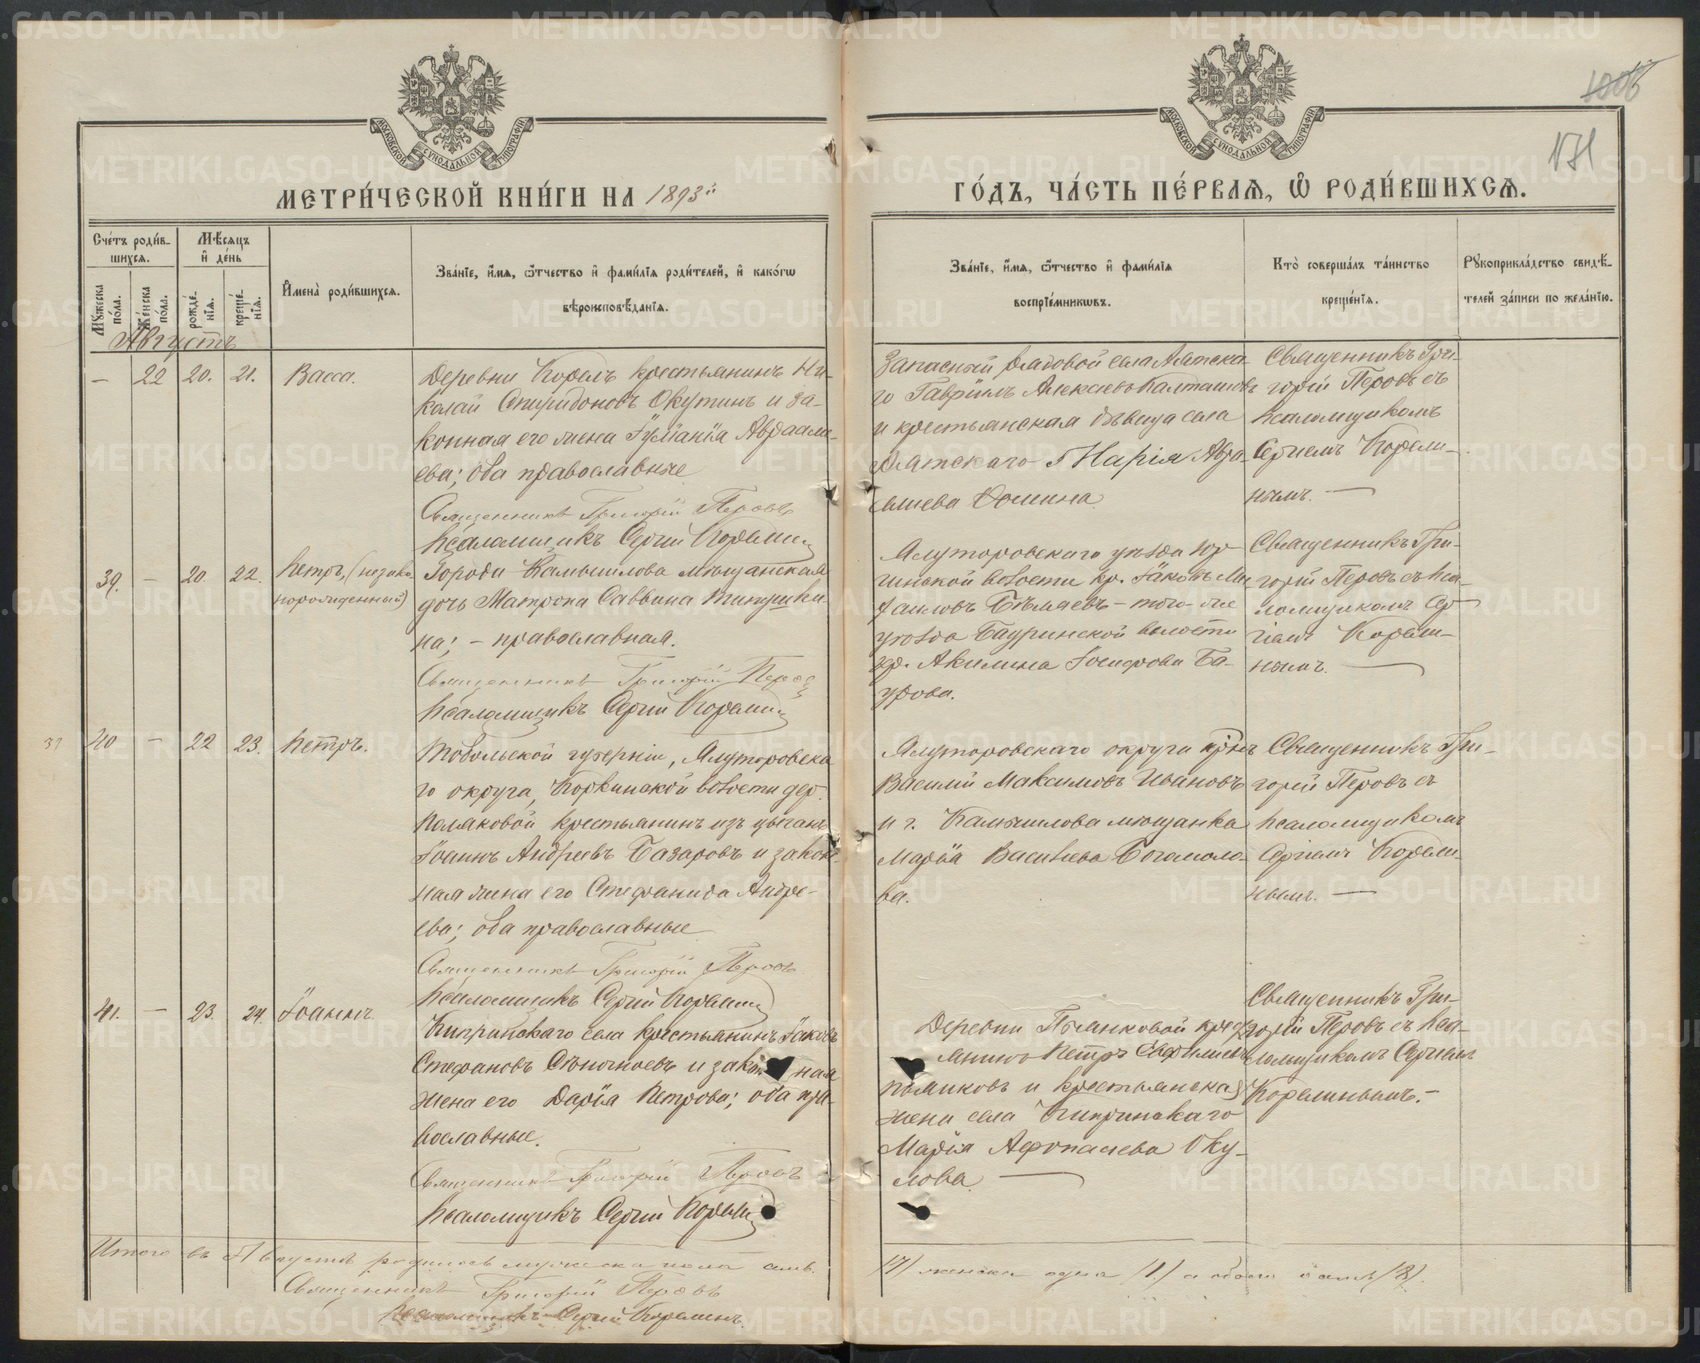 МЕТРИ́ЧЕСКОЙ КНИ́ГИ НА 1893й
ГО́ДЪ, ЧА́СТЬ ПЕ́РВАЯ, Ѡ РОДИ́ВШИХСЯ.
171
Сче́тъ роди́в-
шихся.
Мѣ́сяцъ
и де́нь
Му́жеска по́ла.
Же́нска по́ла.
рожде́нїя.
креще́нїя.
И́мена̀ роди́вшихся.
Зва́нїе, и́мя, ѻ́тчество и фами́лїя роди́телей, и како́гѡ
вѣроисповѣ́данїя.
Зва́нїе, и́мя, ѻ́тчество и фами́лїя
воспрїе́мниковъ.
Кто̀ соверша́лъ та́инство
креще́нїя.
Рꙋкоприкла́дство свидѣ́-
телей за́писи по жела́нїю.
Августъ
— 22 20. 21. Васса.
Деревни Корелъ крестьянинъ Ни-
колай Спиридоновъ Окутинъ и за-
конная его жена Іуліанія Авраами-
ева; оба православные
Священникъ Григорій Перовъ
Псаломщикъ Сергій Корелинъ
Запасный рядовой села Алтска-
го Гавріилъ Алексѣевъ Калташовъ
и крестьянская дѣвица села
Марія
Фомина
Священникъ Гри-
горій Перовъ съ
псаломщикомъ
Сергіемъ Корели-
нымъ. —
39. — 20. 22. Петръ, (незакон-
норожденный)
Города Камышлова мѣщанская
дочь Матрона Саввина
на; – православная.
Священникъ Григорій Перовъ
Псаломщикъ Сергій Корелинъ
Ялуторовскаго уѣзда Юр-
гинской волости кр. Іаковъ Ми-
хаиловъ Бѣляевъ – того-же
уѣзда волости
Акилина Іосифова Ба-
урова.
Священникъ Гри-
горій Перовъ съ пса-
ломщикомъ Сер-
гіемъ Корели-
нымъ. —
40 — 22 23. Петръ.
Тобольской губерніи, Ялуторовска-
го округа, Коркинской волости дер.
Поляковой крестьянинъ изъ цыганъ
Іоаннъ Андреевъ Базаровъ и закон-
ная жена его Стефанида Андре-
ева; оба православные
Священникъ Григорій Перовъ
Псаломщикъ Сергій Корелинъ
Ялуторовскаго округа кр-нъ
Василій Максимовъ Ивановъ
и г. Камышлова мѣщанка
Марѳа Васильева Богомоло-
ва.
Священникъ Гри-
горій Перовъ съ
псаломщикомъ
Сергіемъ Корели-
нымъ. —
41. — 23. 24. Іоаннъ.
Кипринскаго села крестьянинъ Іаковъ
Стефановъ и закон-ная
жена его Дарія Петрова; оба пра-
вославные.
Священникъ Григорій Перовъ
Псаломщикъ Сергій Корелинъ
Деревни Поганковой кресть-
янинъ Петръ Евфиміевъ
Поляковъ и крестьянская
жена села Кипринскаго
Марія Афонасиева Оку-
лова —
Священникъ Гри-
горій Перовъ съ пса-
ломщикомъ Сергіемъ
Корелинымъ. –
Итого въ Августѣ родилось мужеска пола семь
(7) женска одна (1) а обоего восемь (8).
Священникъ Григорій Перовъ
Псаломщикъ Сергій Корелинъ.
METRIKI.GASO-URAL.RU